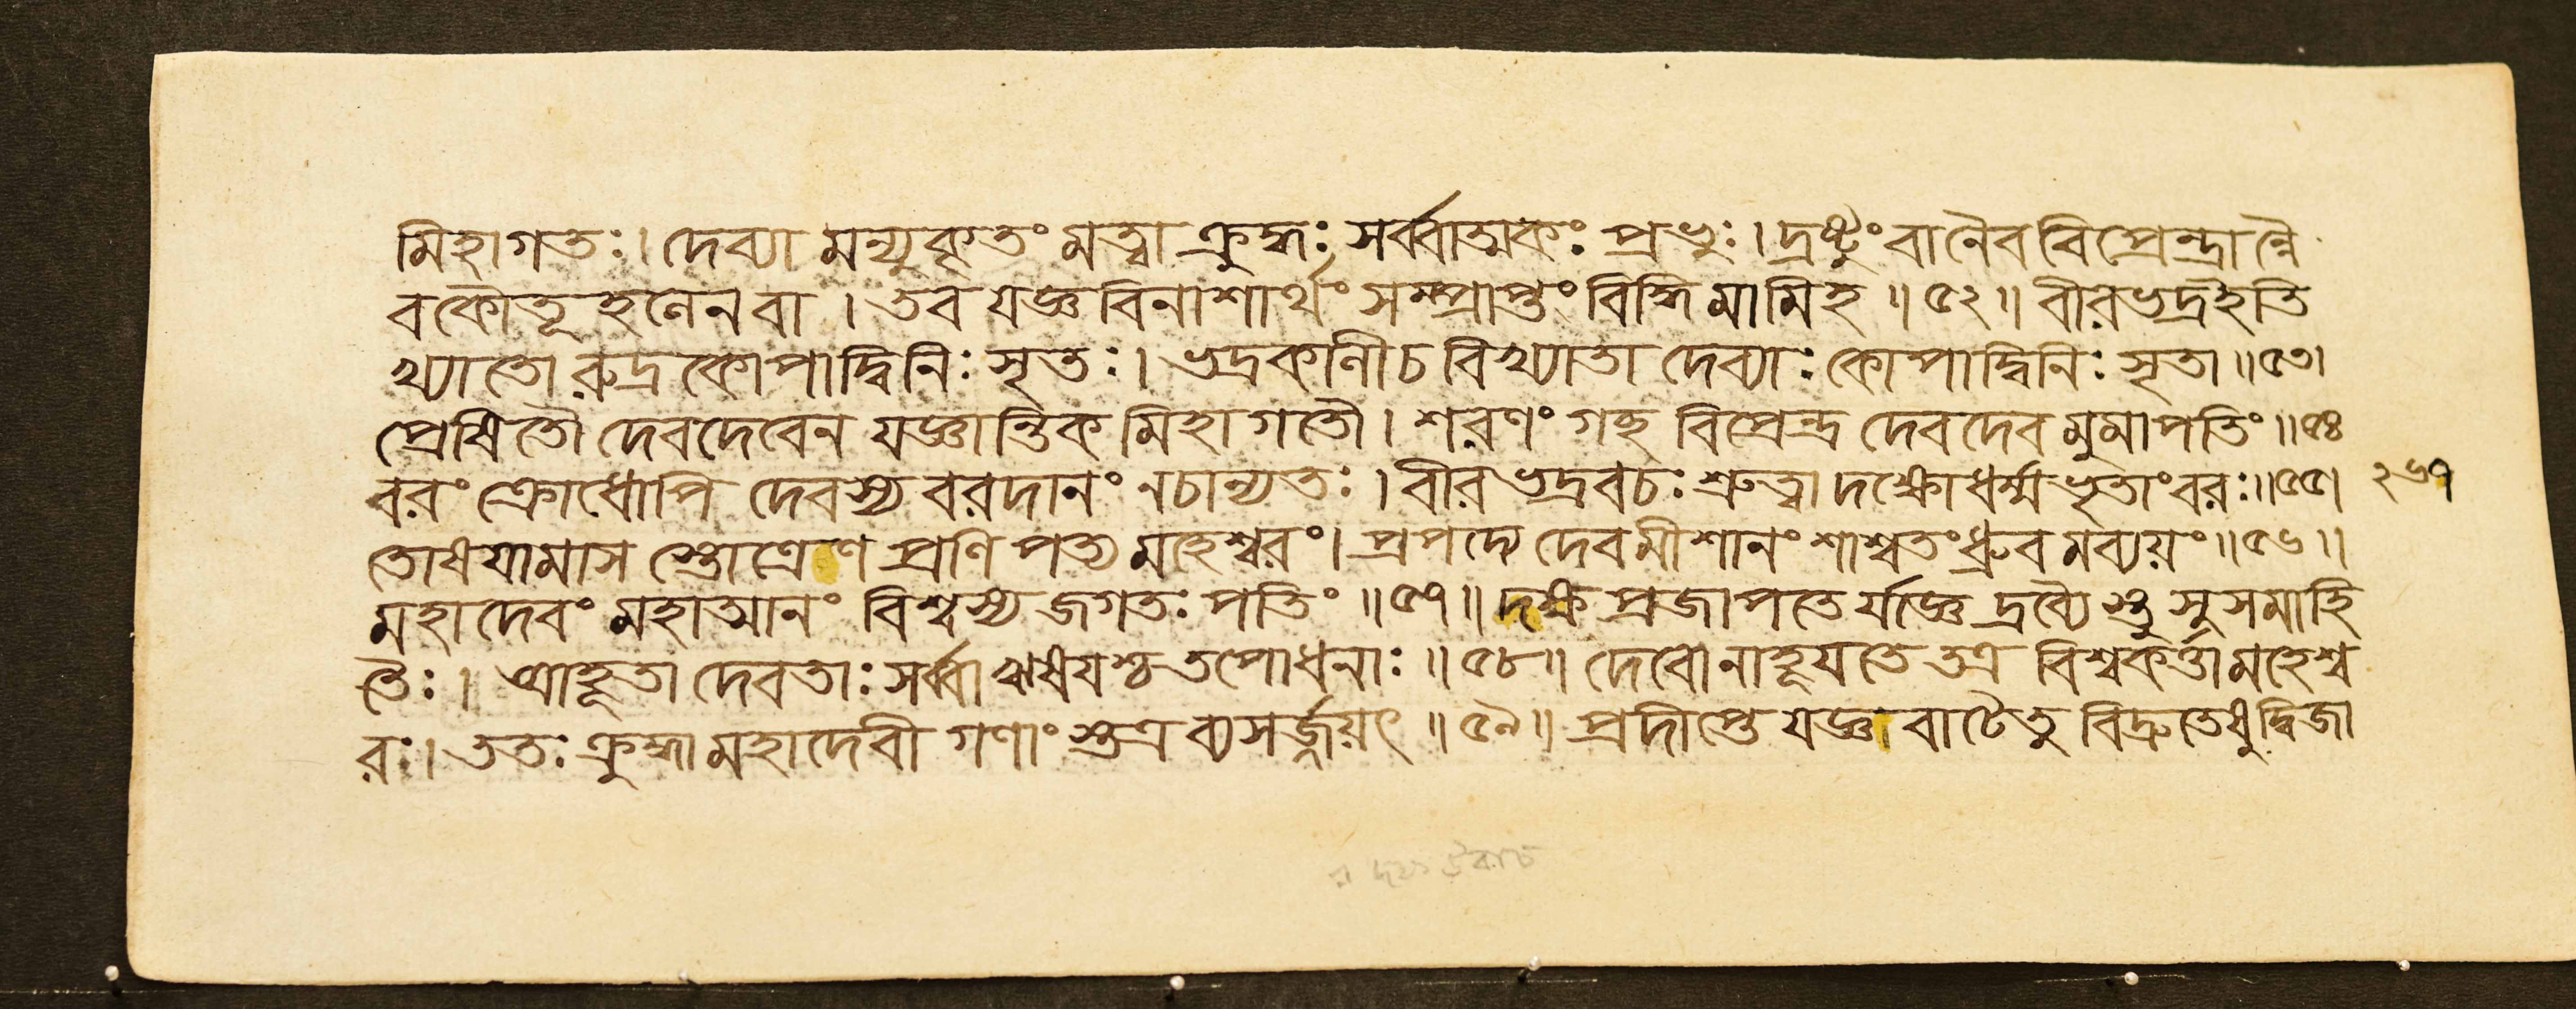 মিহাগতঃ। দেব্যা মন্যুকৃতং মত্বা ক্রুদ্ধঃ সর্ব্বাত্মকঃ প্রভুঃ। দ্রষ্টুং বানৈব বিপ্রেন্দ্রান্নৈ
বকৌতূহলেন বা । তব যজ্ঞ বিনাশার্থং সম্প্রাপ্তং বিদ্ধি মামিহ ॥ ৫২ ॥ বীরভদ্রইতি
খ্যাতো রুদ্রকোপাদ্বিনিঃ সৃতঃ। ভদ্রকালীচ বিখ্যাতা দেব্যাঃ কোপাদ্বিনিঃ সৃতা ॥৫৩।
প্রেষিতৌ দেবদেবেন যজ্ঞান্তিক মিহাগতৌ। শরণং গচ্ছ বিপ্রেন্দ্র দেবদেব মুমাপতিং ॥৫৪
বরং ক্রোধোপি দেবস্য বরদানং নচান্যতঃ। বীরভদ্রবচঃ শ্রুত্বা দক্ষোধর্ম্মভৃতাংবরঃ॥৫৫। ২৬৭
তোষযামাস স্তোত্রেণ প্রণিপত্য মহেশ্বরং। প্রপদ্যে দেবমীশানং শাশ্বতং ধ্রুবমব্যয়ং॥৫৬॥
মহাদেবং মহাত্মানং বিশ্বস্য জগতঃ পতিং ॥৫৭॥ দক্ষ প্রজাপতে র্যজ্ঞে দ্রব্যৈ স্তু সুসমাহি
তৈঃ। আহূতা দেবতাঃ সর্ব্বা ঋষযশ্চ তপোধনাঃ ॥৫৮॥ দেবোনাহূযতে তত্র বিশ্বকর্ত্তা মহেশ্ব
রঃ। ততঃ ক্রুদ্ধা মহাদেবী গণাং স্তত্র ব্যসর্জ্জয়ৎ ॥ ৫৯॥ প্রদীপ্তে যজ্ঞ বাটেতু বিদ্রুতেষু দ্বিজা